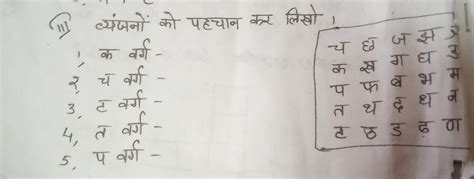 (iii) व्यंजनों को पहचान कर लिखो।
1, क वर्ग -
2, च वर्ग -
3, ट वर्ग -
4, त वर्ग -
5, प वर्ग -
च छ ज झ ञ
क ख ग घ ङ
प फ ब भ म
त थ द ध न
ट ठ ड ढ़ ण